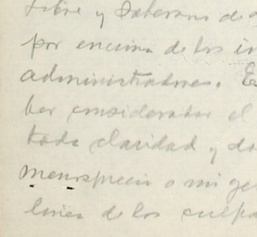 libre y soberano de
por encima de los in
administradores. E
ber considerar el
toda claridad y
menosprecio a mi ge
línea de los culpa